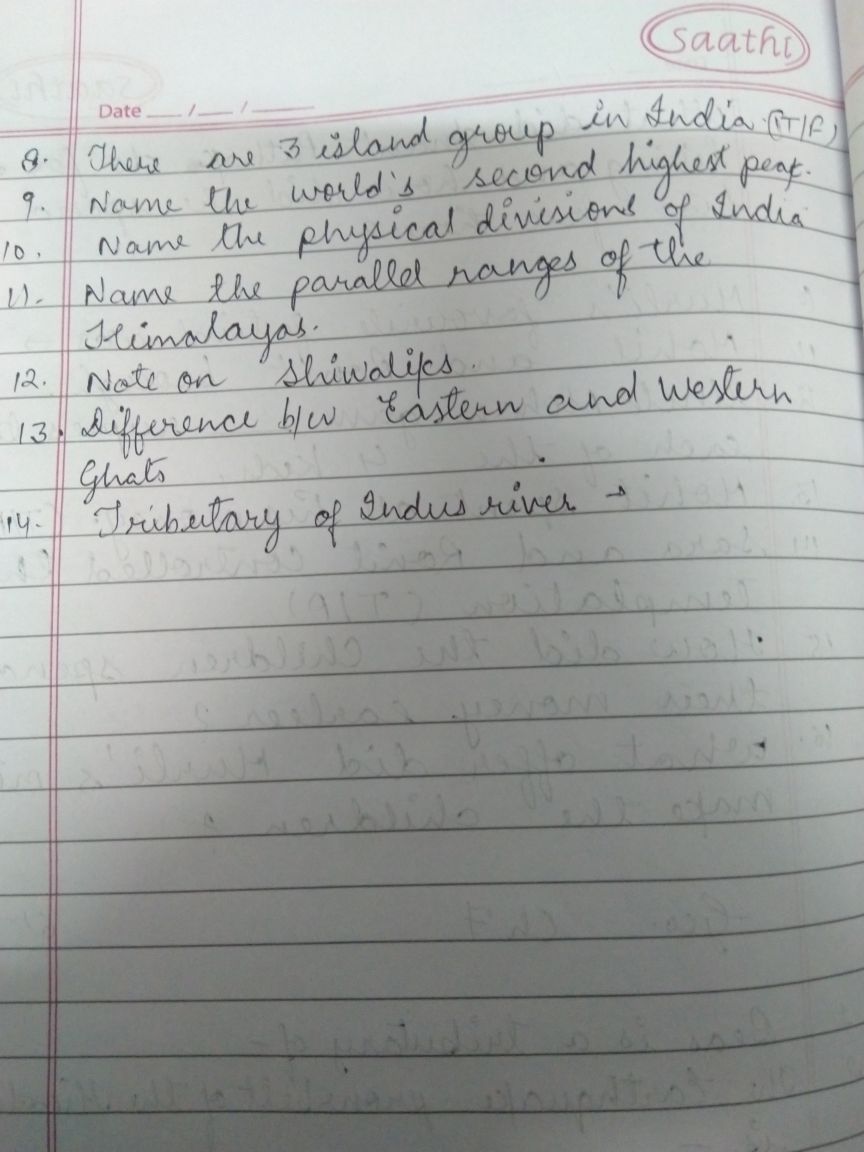 Saathi
Date __/__/____
8. There are 3 island group in India. (T/F)
9. Name the world's second highest peak.
10. Name the physical divisions of India
11. Name the parallel ranges of the
Himalayas.
12. Note on Shiwaliks.
13. Difference b/w Eastern and Western
Ghats
14. Tributary of Indus river →